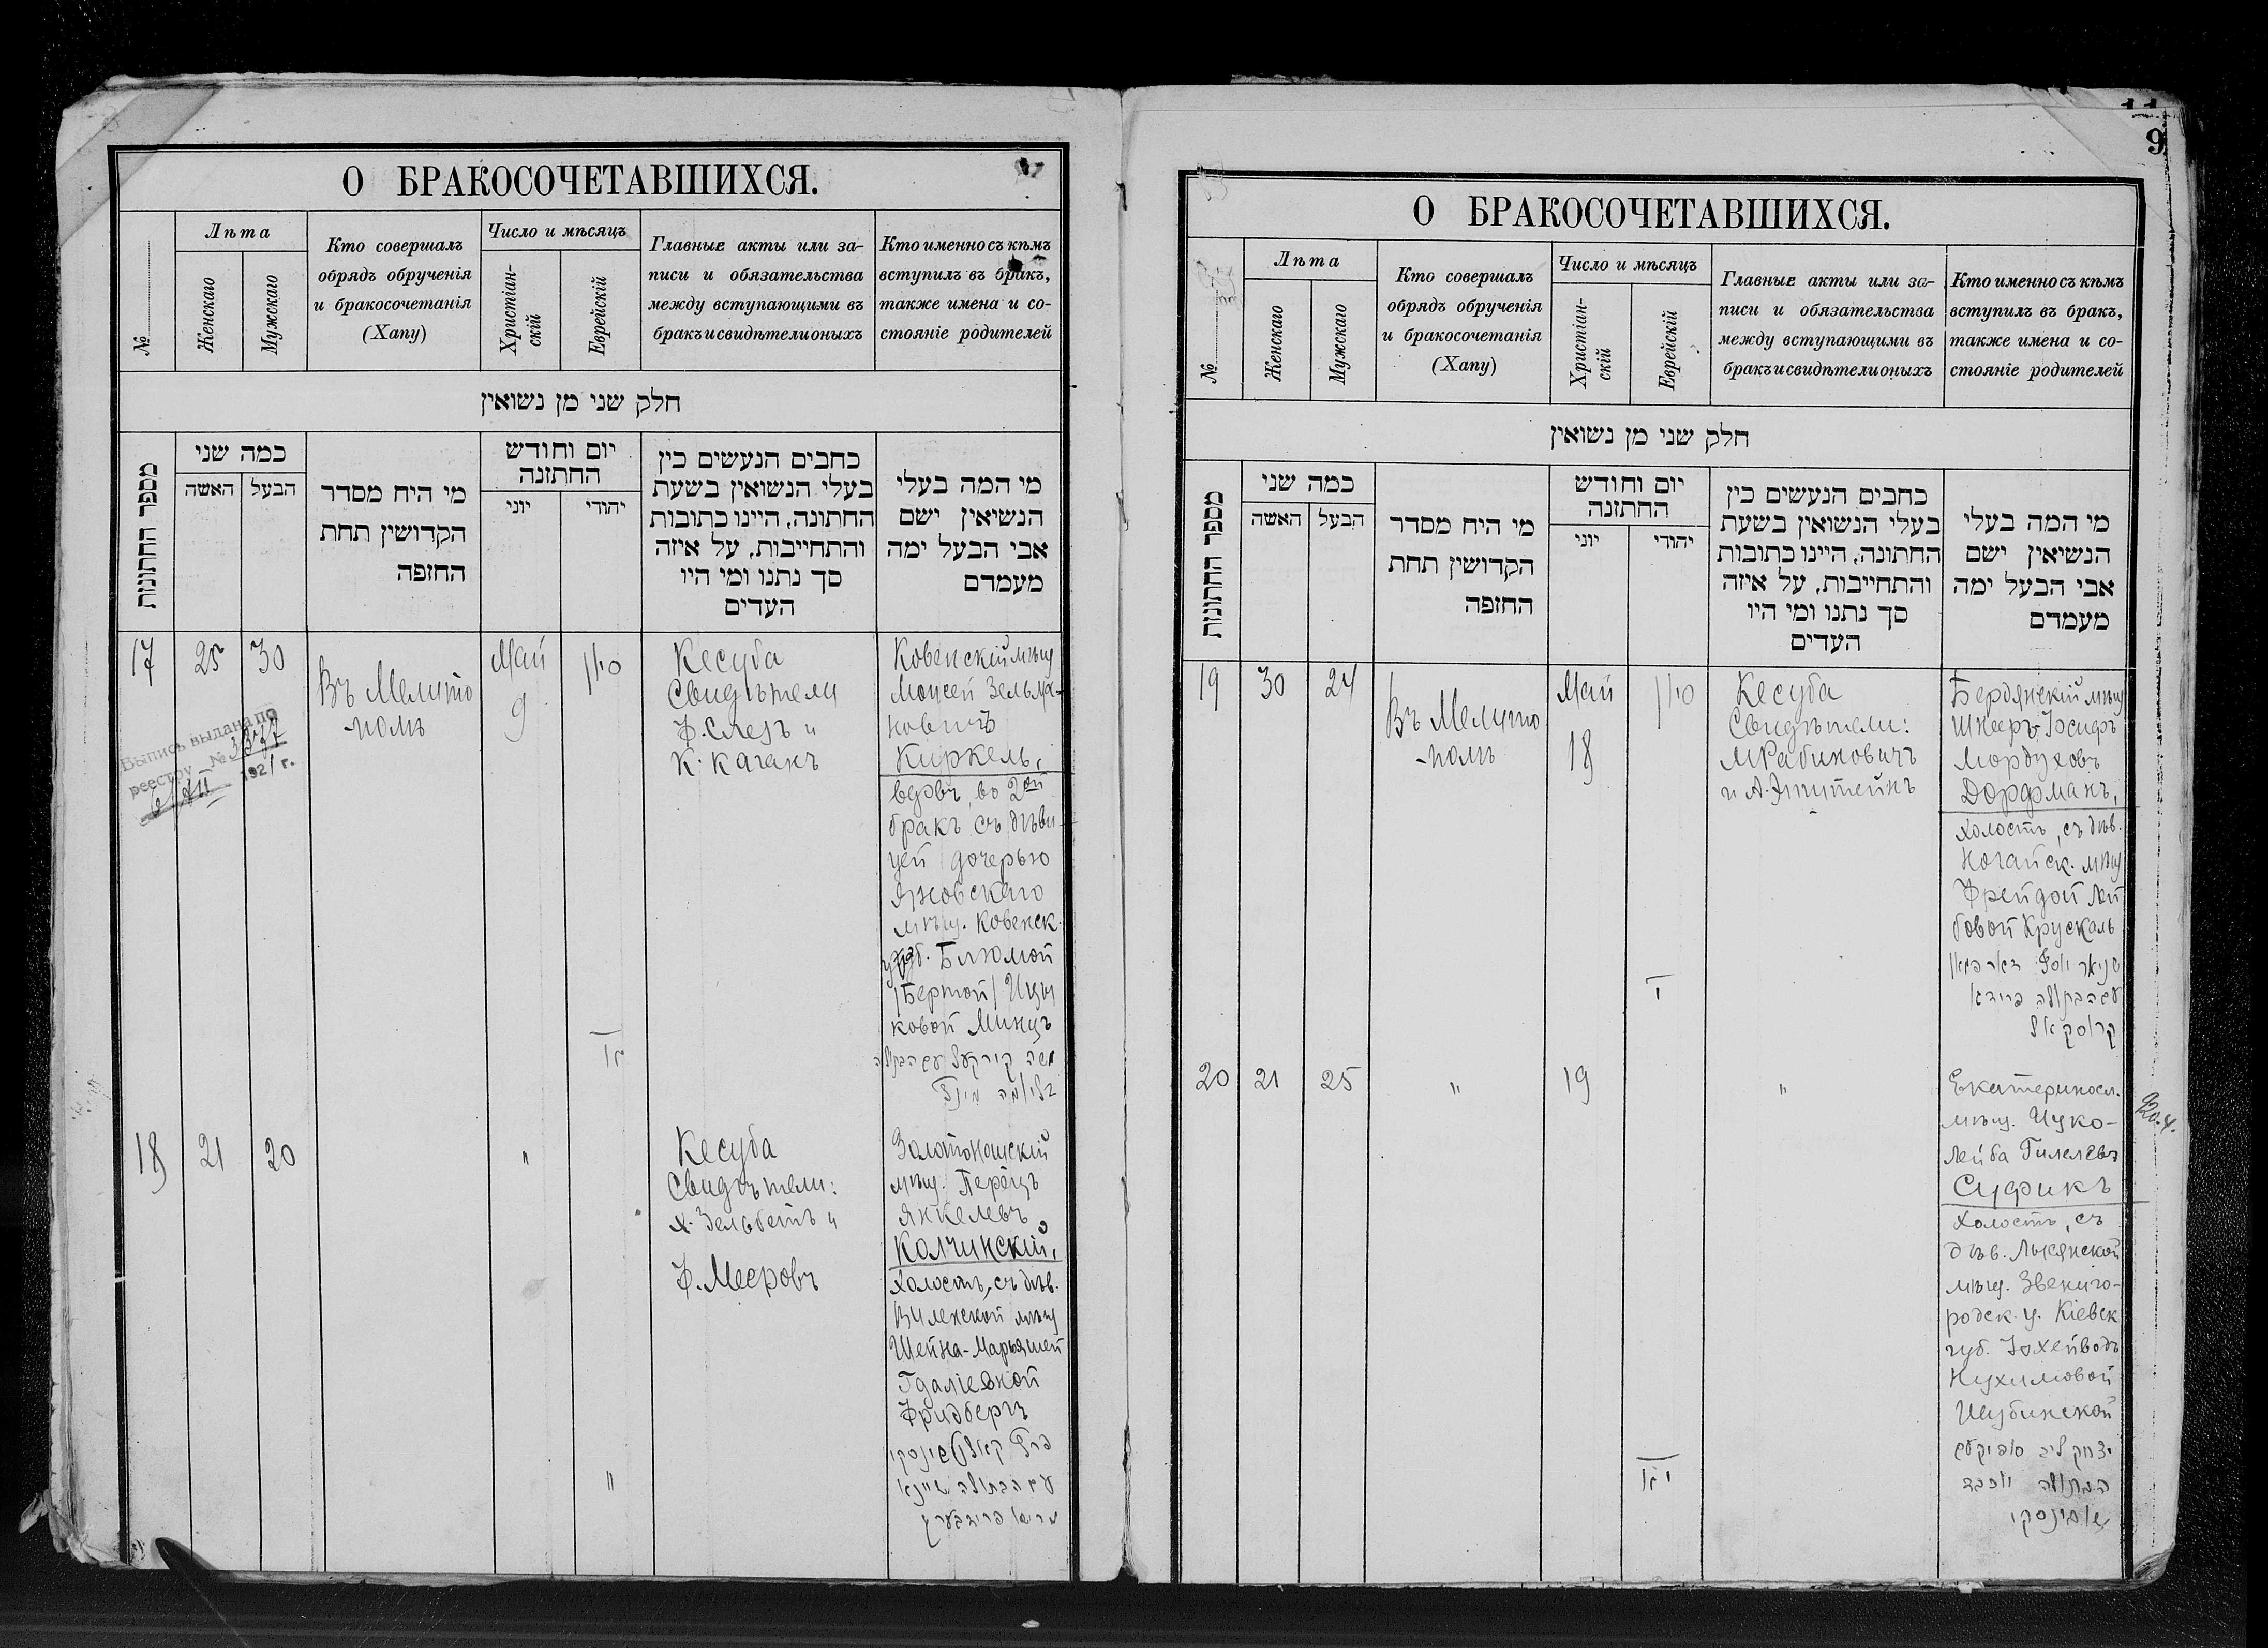 О БРАКОСОЧЕТАВШИХСЯ.
№
Лѣта
Женскаго
Мужскаго
Кто совершалъ
обрядъ обрученія
и бракосочетанія
(Хапу)
Число и мѣсяцъ
Христіан-
скій
Еврейскій
Главные акты или за-
писи и обязательства
между вступающими въ
бракъ и свидѣтели оныхъ
Кто именно съ кѣмъ
вступилъ въ бракъ,
также имена и со-
стояніе родителей
חלק שני מן נשואין
מספר החתונות
כמה שני
האשה
הבעל
מי היח מסדר
הקדושין תחת
החזפה
יום וחודש
החתזנה
יוני
יהודי
כחבים הנעשים כין
בעלי הנשואין בשעת
החתונה, היינו כתובות
והתחייבות, על איזה
סך נתנו ומי היו
העדים
מי המה בעלי
הנשיאין ישם
אבי הבעל ימה
מעמדם
17
25
30
Въ Мелито
-полѣ
Май
9
סיון
יא
Кесуба
Свидѣтели
Ф. Слезъ и
К. Каганъ
Ковенскій мѣщ
Моисей Зельма-
новичъ
Киркель,
вдовъ, во 2ой
бракъ съ дѣви-
цей дочерью
Яновскаго
мѣщ. Ковенск.
губ. Блюмой
/Бертой/ Ицы
ковой Минцъ
משה קירקעל עם הבתולה
בלומה מינץ
Выпись выдана по
реестру №
1921 г.
18
21
20
"
"
Кесуба
Свидѣтели:
Х. Зельбетъ и
Ф. Мееровъ
Золотоношскій
мѣщ. Перецъ
Янкелевъ
Колчинскій,
холостъ, съ дѣв.
Виленской мѣщ
Шейна-Марьяшей
Гдаліевной
Фридбергъ
פרץ קאלטשינסקי
עם הבתולה שיינא
מריאשא פרידבערג
11
9
О БРАКОСОЧЕТАВШИХСЯ.
№
Лѣта
Женскаго
Мужскаго
Кто совершалъ
обрядъ обрученія
и бракосочетанія
(Хапу)
Число и мѣсяцъ
Христіан-
скій
Еврейскій
Главные акты или за-
писи и обязательства
между вступающими въ
бракъ и свидѣтели оныхъ
Кто именно съ кѣмъ
вступилъ въ бракъ,
также имена и со-
стояніе родителей
חלק שני מן נשואין
מספר החתונות
כמה שני
האשה
הבעל
מי היח מסדר
הקדושין תחת
החזפה
יום וחודש
החתזנה
יוני
יהודי
כחבים הנעשים כין
בעלי הנשואין בשעת
החתונה, היינו כתובות
והתחייבות, על איזה
סך נתנו ומי היו
העדים
מי המה בעלי
הנשיאין ישם
אבי הבעל ימה
מעמדם
19
30
24
Въ Мелито
-полѣ
Май
18
סיון
י
Кесуба
Свидѣтели:
М Рабиновичъ
и А. Эпштейнъ
Бердянскій мѣщ
Шнееръ-Іосифъ
Мордуховъ
Дорфманъ,
холостъ, съ дѣв.
Ногайск. мѣщ
Фрейдой Лей
бовой Крускаль
שניאר יוסף דארפמאן
עם הבתולה פריידא
קרוסקאל
20
21
25
"
19
יא
"
Екатеринос.
мѣщ. Ицко-
Лейба Гилелевъ
Суфикъ
холостъ, съ
дѣв. Лысянской
мѣщ. Звениго-
родск. у. Кіевск
губ. Іохейводъ
Нухимовой
Шубинской
יצחק ליב סופיק עם
הבתולה יוכבד
שובינסקי